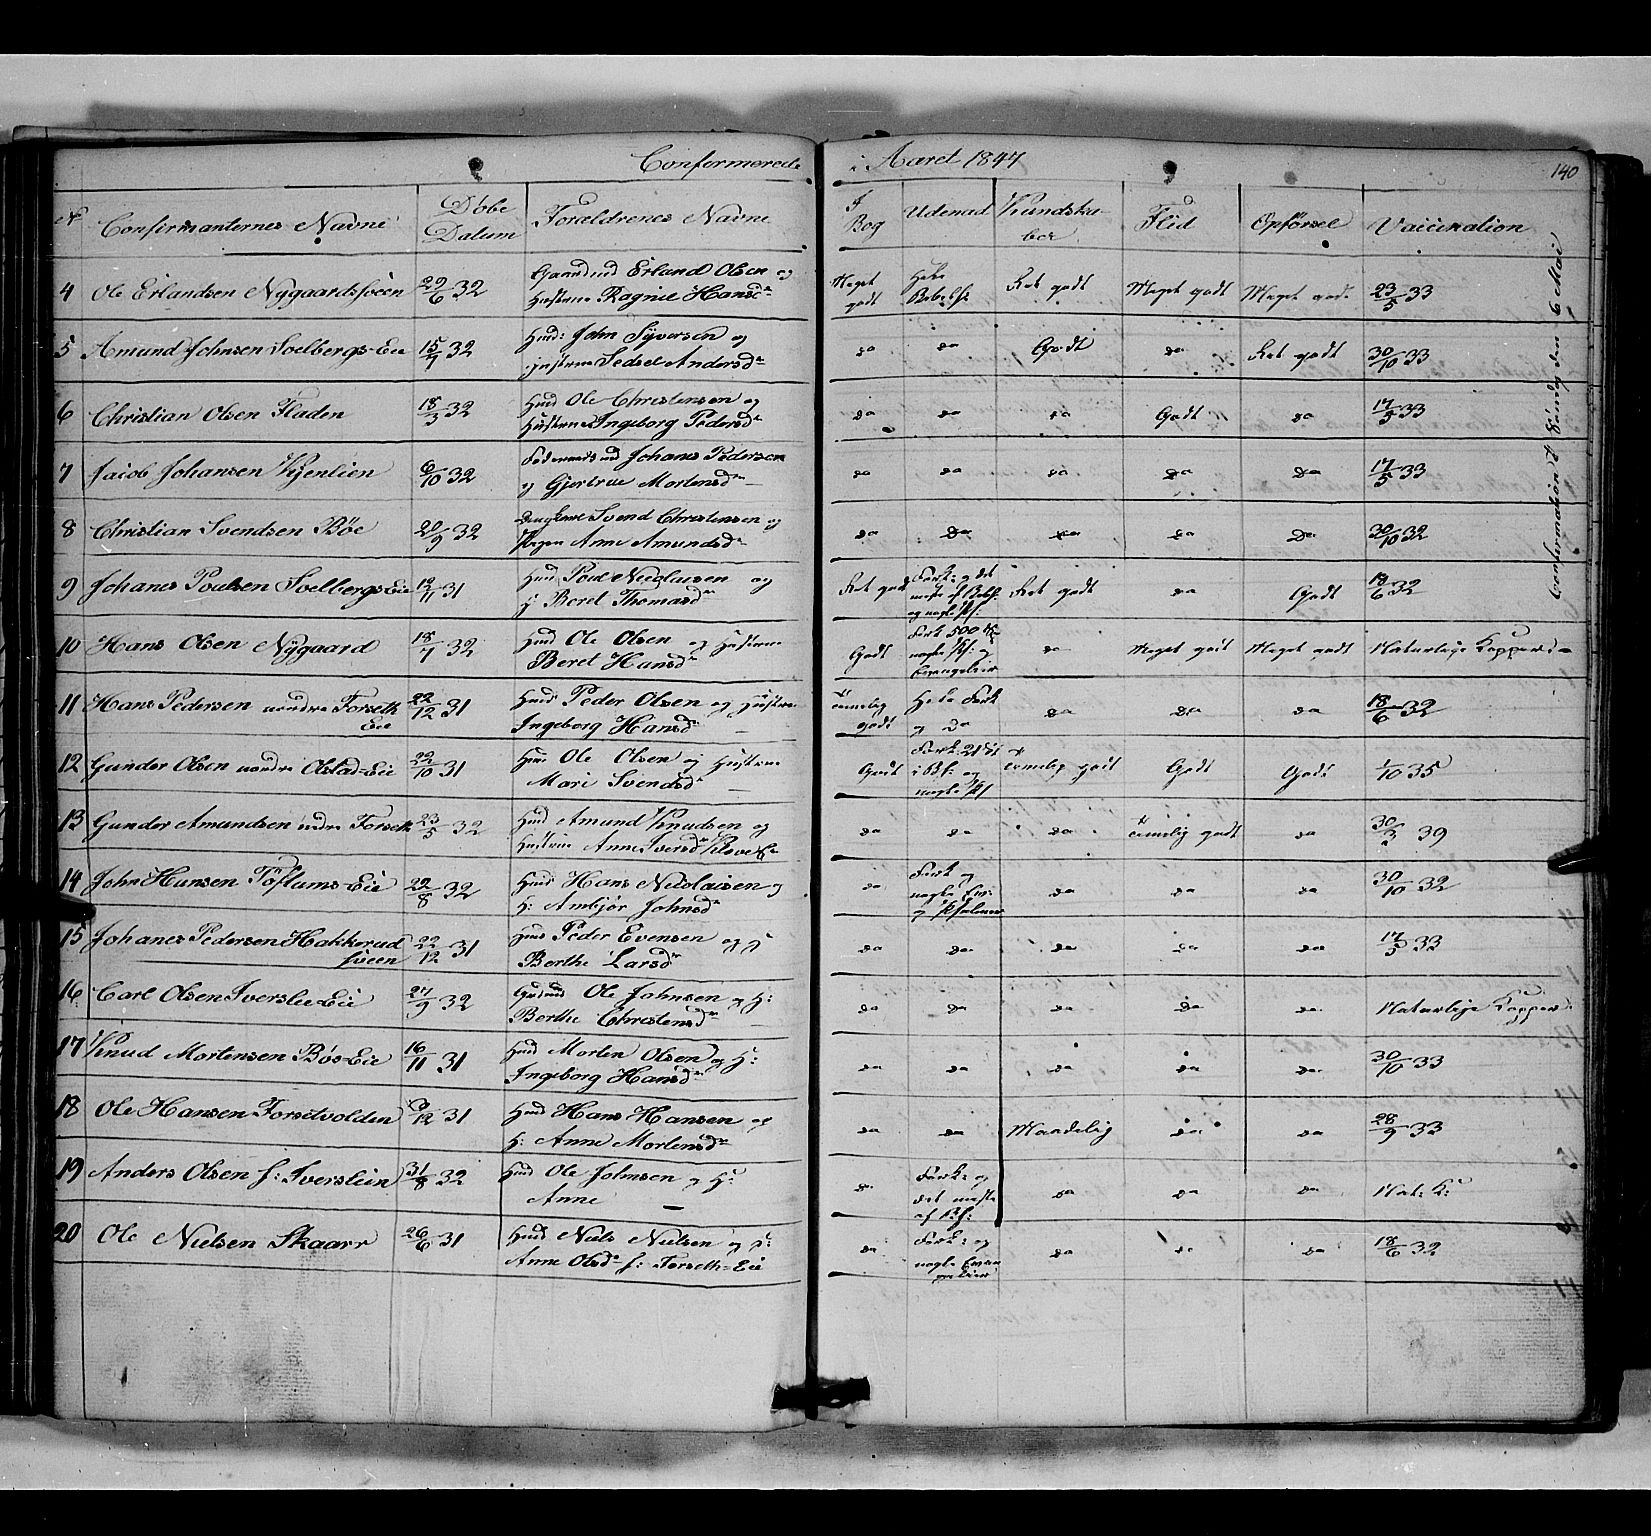 Confirmerede i Aaret 1847
140
No Confirmanternes Navne Døbe Datum Forældrenes Navne I Bog Udenad Kundskaber Flid Opførsel Vaccination
4 Ole Erlandsen Nygaardssveen 22/6 32 Gaardmd Erland Olsen og Hustrue Ragnil Hansdr Meget godt Hele Bibelh. Ret godt Meget godt Meget godt 23/5 33
5 Amund Johnsen Soelbergs-Eie 15/7 32 Huusd: John Syversen og Hustrue Sedsel Andersdr da da Godt da Ret godt 30/10 33
6 Christian Olsen Fladen 18/3 32 Huusd Ole Christensen og Hustrue Ingeborg Pedersdr da da da Godt da 17/5 33
7 Jacob Johansen Kjenlien 6/10 32 Johans Pedersen og Gjertrue Mortensdr da da da da da 17/5 33
8 Christian Svendsen Bøe 20/9 32 Ungkarl Svend Christensen og Pigen Anne Amundsdr da da da da Da 30/10 32
9 Johanes Poulsen Soelbergs Eie 12/11 31 Huusd Poul Nicolaisen og H Beret Thomasdr Ret godt Fork: og det meste af Bibelh: og nogle Ps: Ret godt da Godt 18/6 32
10 Hans Olsen Nygaard 18/7 32 Huusd Ole Olsen og Hustrue Beret Hansdr Godt Fork 500 nogle Ps: og Evangelier da Meget godt Meget godt Naturlige Kopper
11 Hans Pedersen nordre Forseth Eie 22/12 31 Huusd Peder Olsen og Hustrue Ingeborg Hansdr Temmelig godt Hele Fork og da da da da 18/6 32
12 Gunder Olsen nordre Olstad-Eie 22/10 31 Huusd Ole Olsen og Hustrue Mari Svendsdr Godt Fork: 21 i Bh: og nogle Ps Temmelig godt Godt Godt 1/10 35
13 Gunder Amundsen nedre Forseth 23/5 32 Huusd Amund Knudsen og Hustrue Anne Iversdr da da da Temmelig godt da 30/3 39
14 John Hansen Toftums-Eie 22/8 32 Huusd Hans Nicolaisen og H: Ambjør Johnsdr da Fork og nogle Ev: og Psalmer da da da 30/10 32
15 Johanes Pedersen Hakkerudsveen 22/12 31 Huusd Peder Evensen og H Berthe Larsdr da da da da da 17/5 33
16 Carl Olsen Iverslie-Eie 27/9 32 Ole Johnsen og H: Berthe Christensdr da da da da da Naturlige Kopper
17 Knud Mortensen Bøs-Eie 16/11 31 Huusd Morten Olsen og H: Ingeborg Hansdr da da da da da 30/10 33
18 Ole Hansen Forsetvolden 12 31 Huusd Hans Hansen og H: Anne Mortensdr da da Maadelig da da 28/9 33
19 Anders Olsen f: Iverslien 31/8 32 Huusd Ole Johnsen og H: Anne — da Fork: og det meste af Bh: da da da Nat: K:
20 Ole Nielsen Skaarr 26/6 31 Huusd Niels Nielsen og H: Anne Olsdr f: Forseth-Eie da Fork: og nogle Evangelier da da da 18/6 32
Confirmation Søndag den 6 Mai